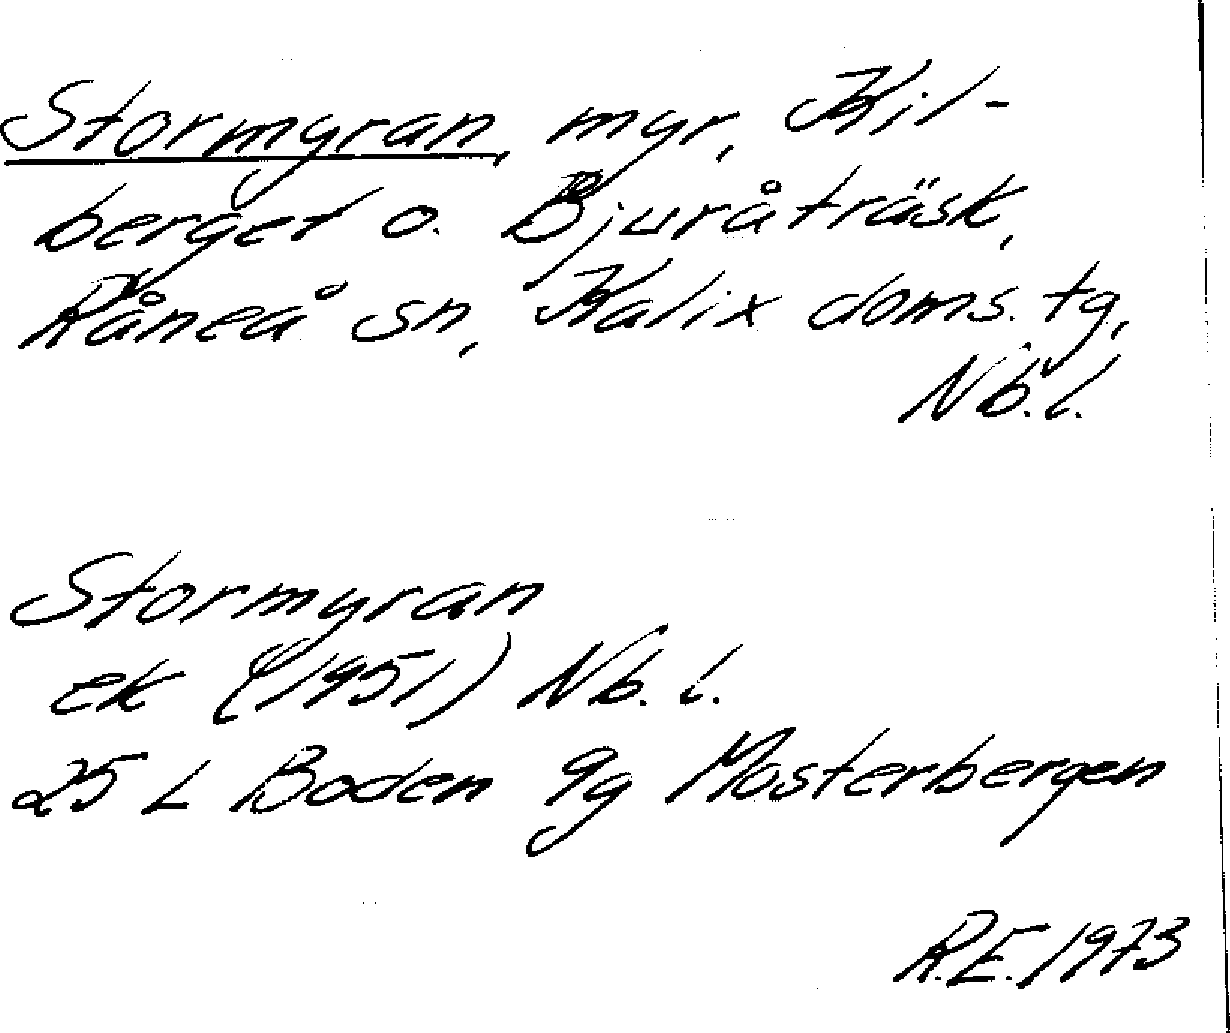 Stormyran, myr, Kil-
berget o. Bjuråträsk,
Råneå sn, Kalix doms. tg,
Nb.l.
Stormyran
ek (1951) Nb. l.
25 L Boden 9g Mosterbergen
R.E. 1973